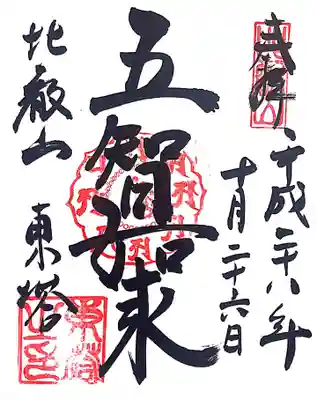 奉拝
平成二十八年
十月二十六日
五智如来
比叡山
東塔